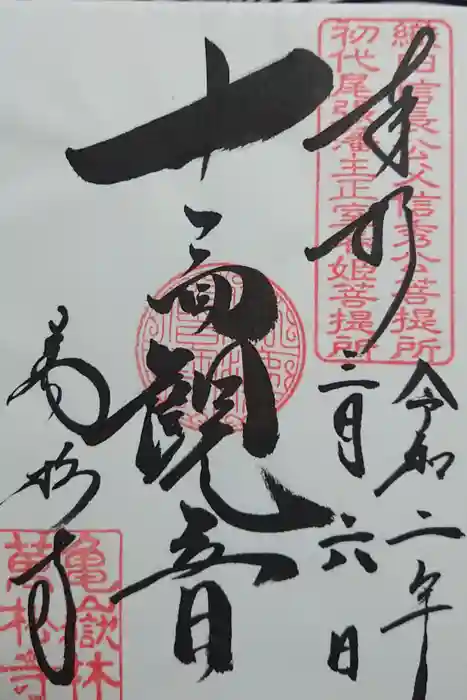 織田信長公父信秀公菩提所
初代尾張藩主正室春姫菩提所
奉拝
令和二年
三月六日
十一面観音
萬松寺
亀嶽林
萬松寺